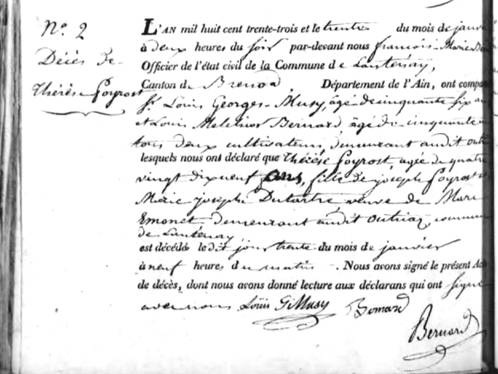 N.º 2
Décès de
Thérèse Poyrost
L'AN mil huit cent trente-trois et le trente du mois de janvier
à deux heures du soir par-devant nous françois Marie
Officier de l'état civil de la Commune de Lantenay,
Canton de Brenod, Département de l'Ain, ont comparu
Sr Louis Georges Musy, âgé de cinquante six ans
et Louis Melchior Bernard, âgé de cinquante
tous deux cultivateurs, demeurant audit outriaz
lesquels nous ont déclaré que Thérèse Poyrost agée de quatre
vingt dix neuf ans, fille de joseph Poyrost et
Marie joseph Dutartre veuve de Marc
Emonet demeurant audit Outriaz, commune
de Lantenay
est décédé le dit jour trente du mois de janvier
à neuf heures du matin. Nous avons signé le présent Acte
de décès, dont nous avons donné lecture aux déclarans qui ont signé
avec nous Louis G Musy
Bernard